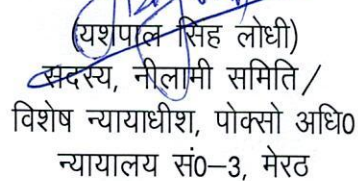 (यशपाल सिंह लोधी)
सदस्य, नीलामी समिति/
विशेष न्यायाधीश, पोक्सो अधि0
न्यायालय सं0–3, मेरठ